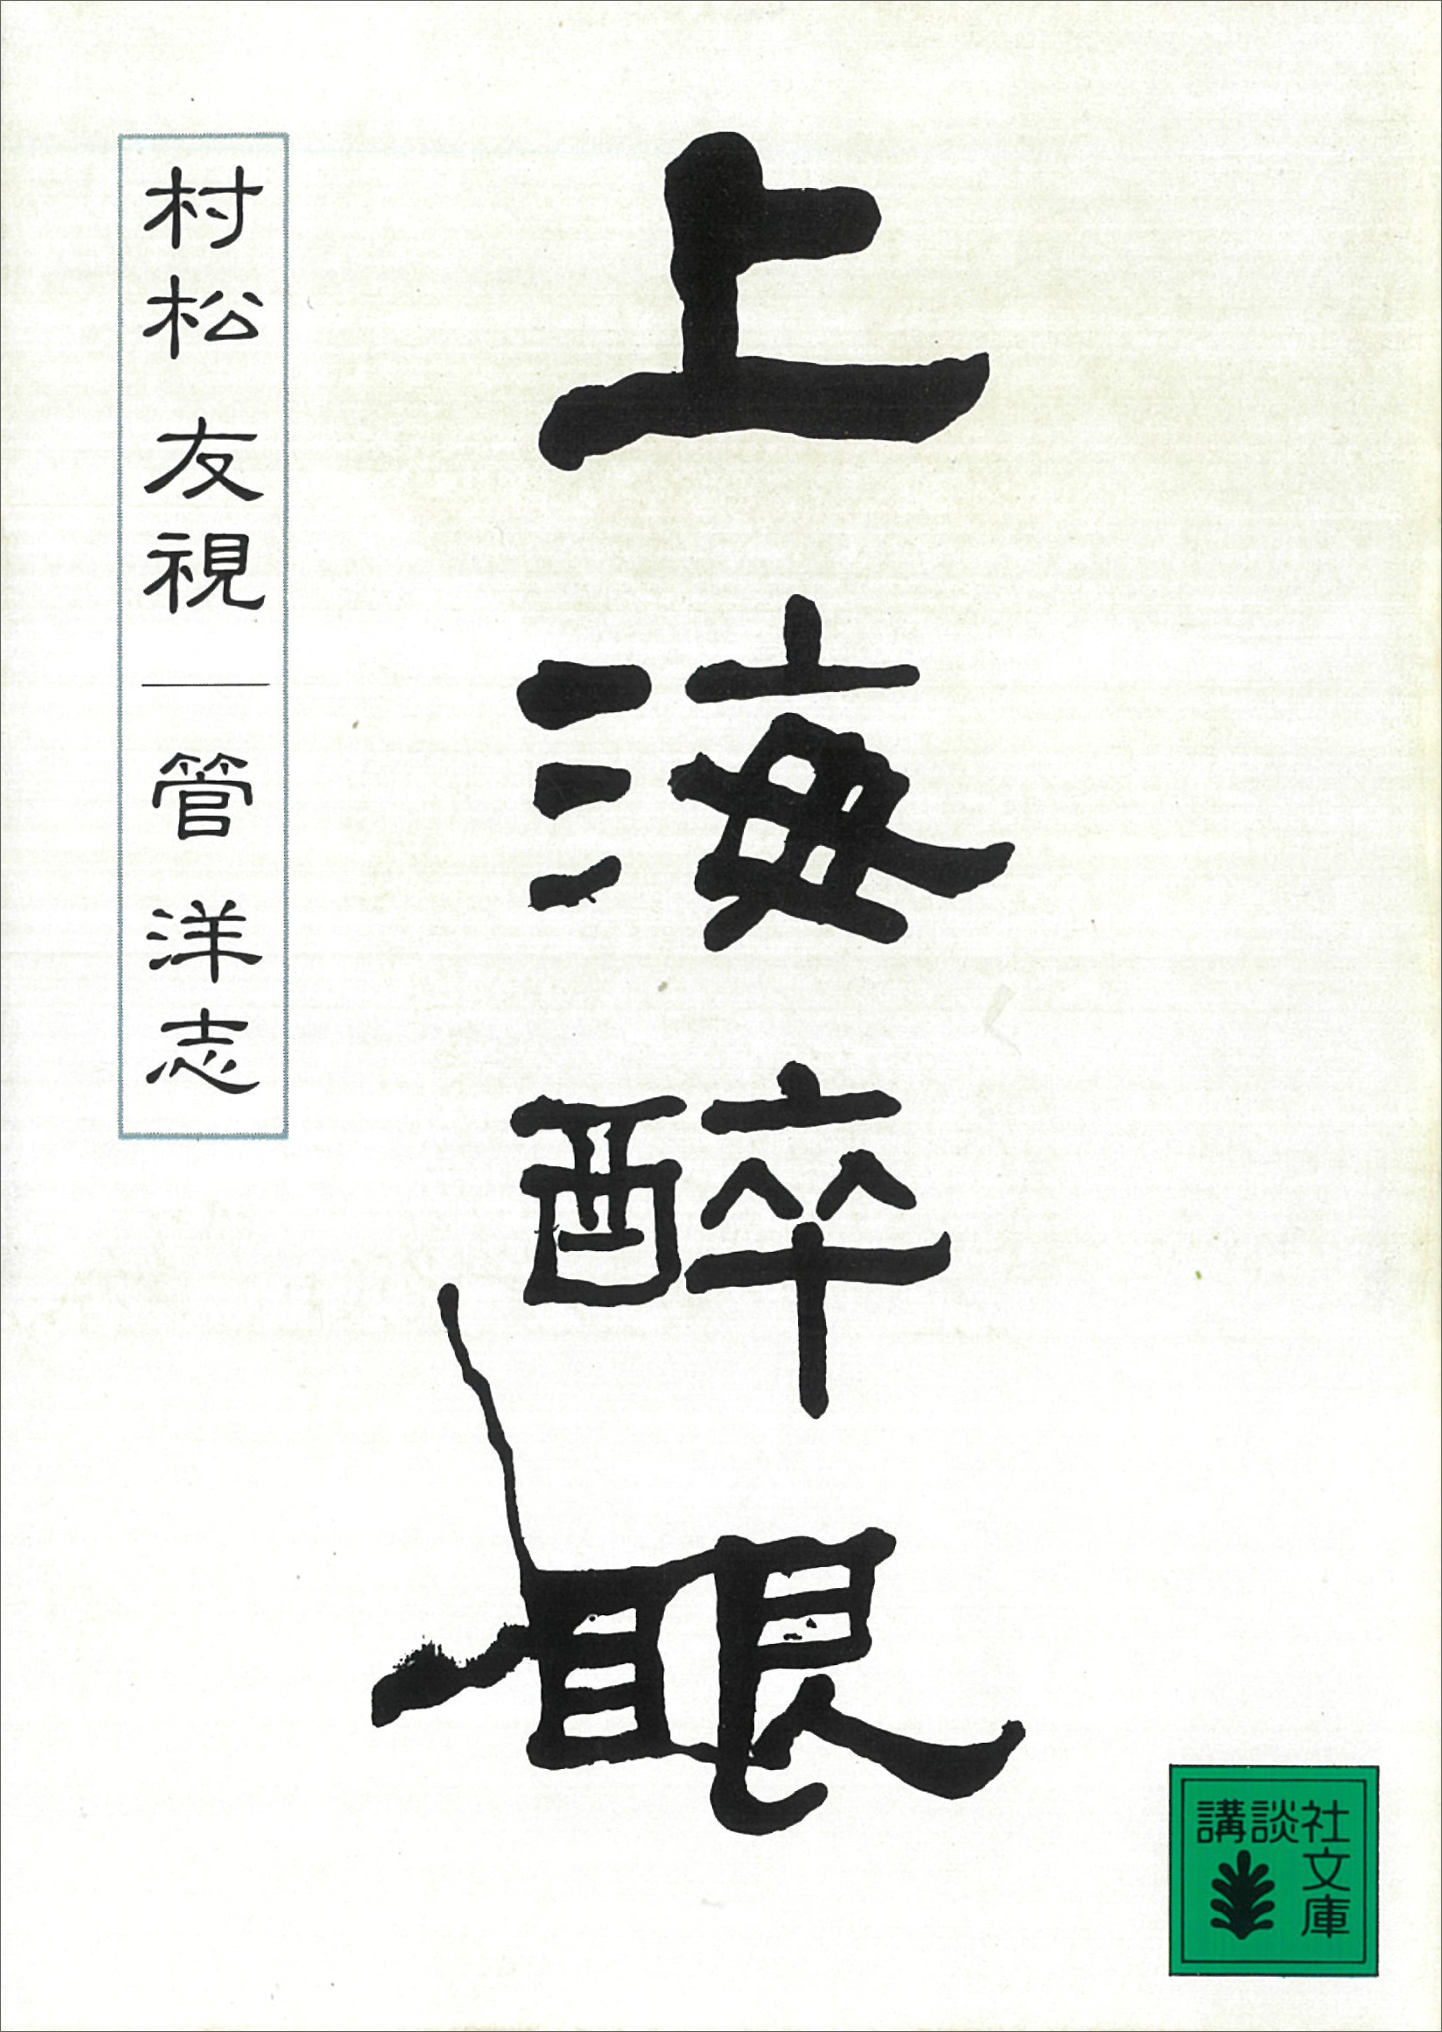 上海酔眼
村松友視
管洋志
講談社
文庫